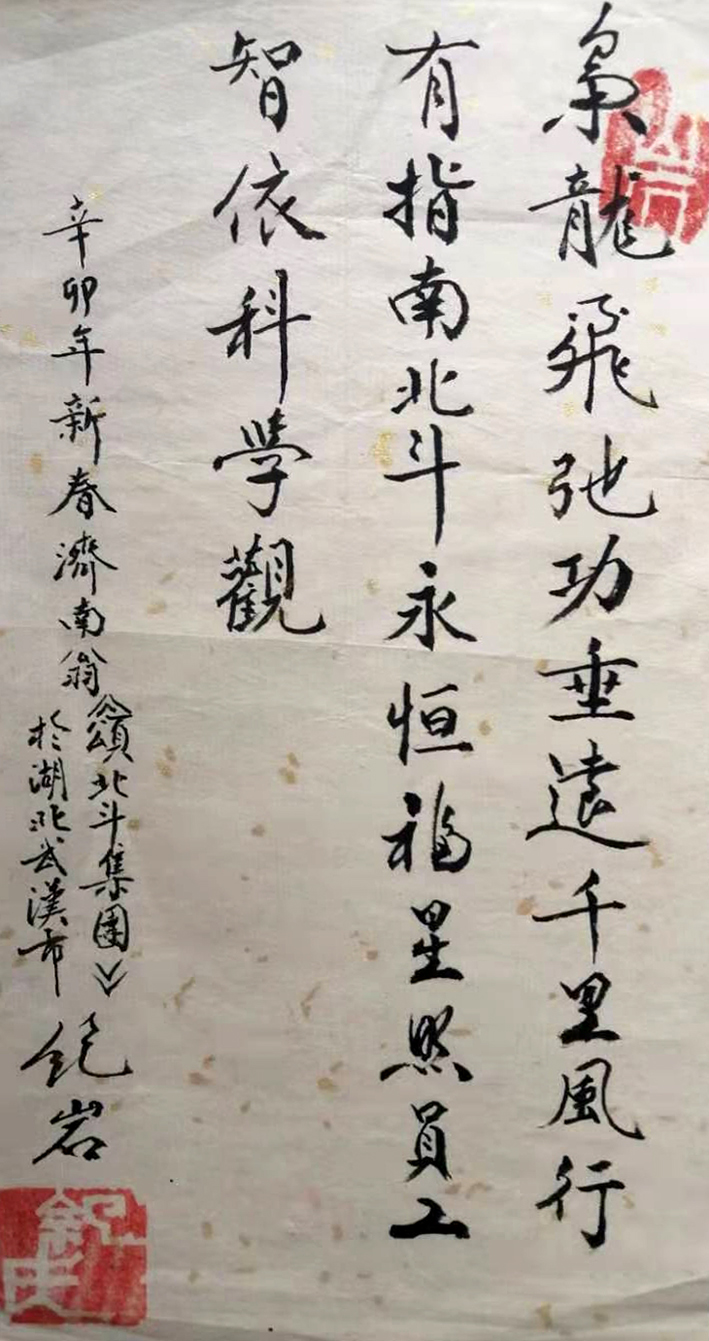 梟龍飛弛功垂遠千里風行
有指南北斗永恒福星照員工
智依科學觀
辛卯年新春濟南翁
頌北斗集團
於湖北武漢市
紀岩